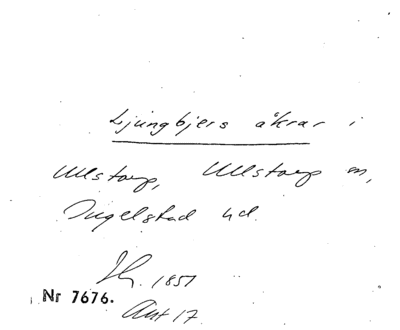 Ljungbjers åkrar i
Ullstorp, Ullstorp sn,
Ingelstad hd.
1857
Nr 7676.
Akt 17